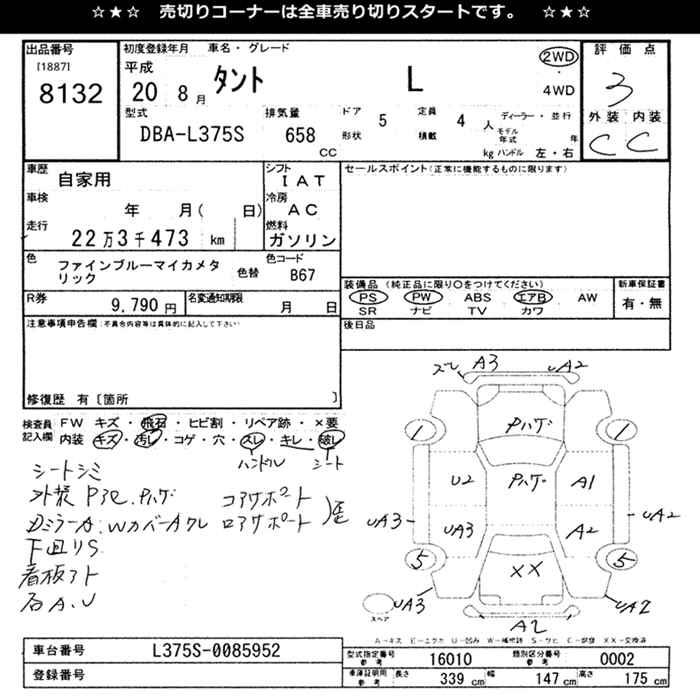 ☆★☆ 売切りコーナーは全車売り切りスタートです。 ☆★☆
出品番号
[1887]
8132
初度登録年月
平成
20 8 月
車名・グレード
タント L
2WD
4WD
評価点
3
外装 内装
C C
型式
DBA-L375S
排気量
658
CC
ドア 5
形状
定員 4 人
積載 kg
ディーラー・並行
モデル年式 年
ハンドル 左・右
車歴
自家用
車検
年 月( 日)
走行
22万3千473 km
シフト
IAT
冷房
AC
燃料
ガソリン
色
ファインブルーマイカメタリック
色替
色コード
B67
R券
9,790 円
名変通知期限
月 日
セールスポイント(正常に機能するものに限ります)
装備品 (純正品に限り○をつけてください)
PS PW ABS エアB AW
SR ナビ TV カワ
新車保証書
有・無
後日品
注意事項申告欄(不具合内容等は具体的に記入して下さい)
修復歴 有〔箇所 〕
検査員記入欄
FW キズ・飛石・ヒビ割・リペア跡・×要
内装 キズ・汚レ・コゲ・穴・スレ・キレ・破レ
ハンドル シート
シートシミ
コアサポート
ロアサポート
下回りS
看板アト
ズレ A3 UA2
1 Pハゲ 1
U2 Pハゲ A1
UA3 UA3 A2 UA2
5 XX 5
スペア
UA3 A2 UA2
A-キズ E-エクボ U-凹み W-補修跡 S-サビ C-腐食 XX-交換済
車台番号
L375S-0085952
登録番号
型式指定番号
参考
16010
類別区分番号
参考
0002
車庫証明用
参考
長さ 339 cm
幅 147 cm
高さ 175 cm